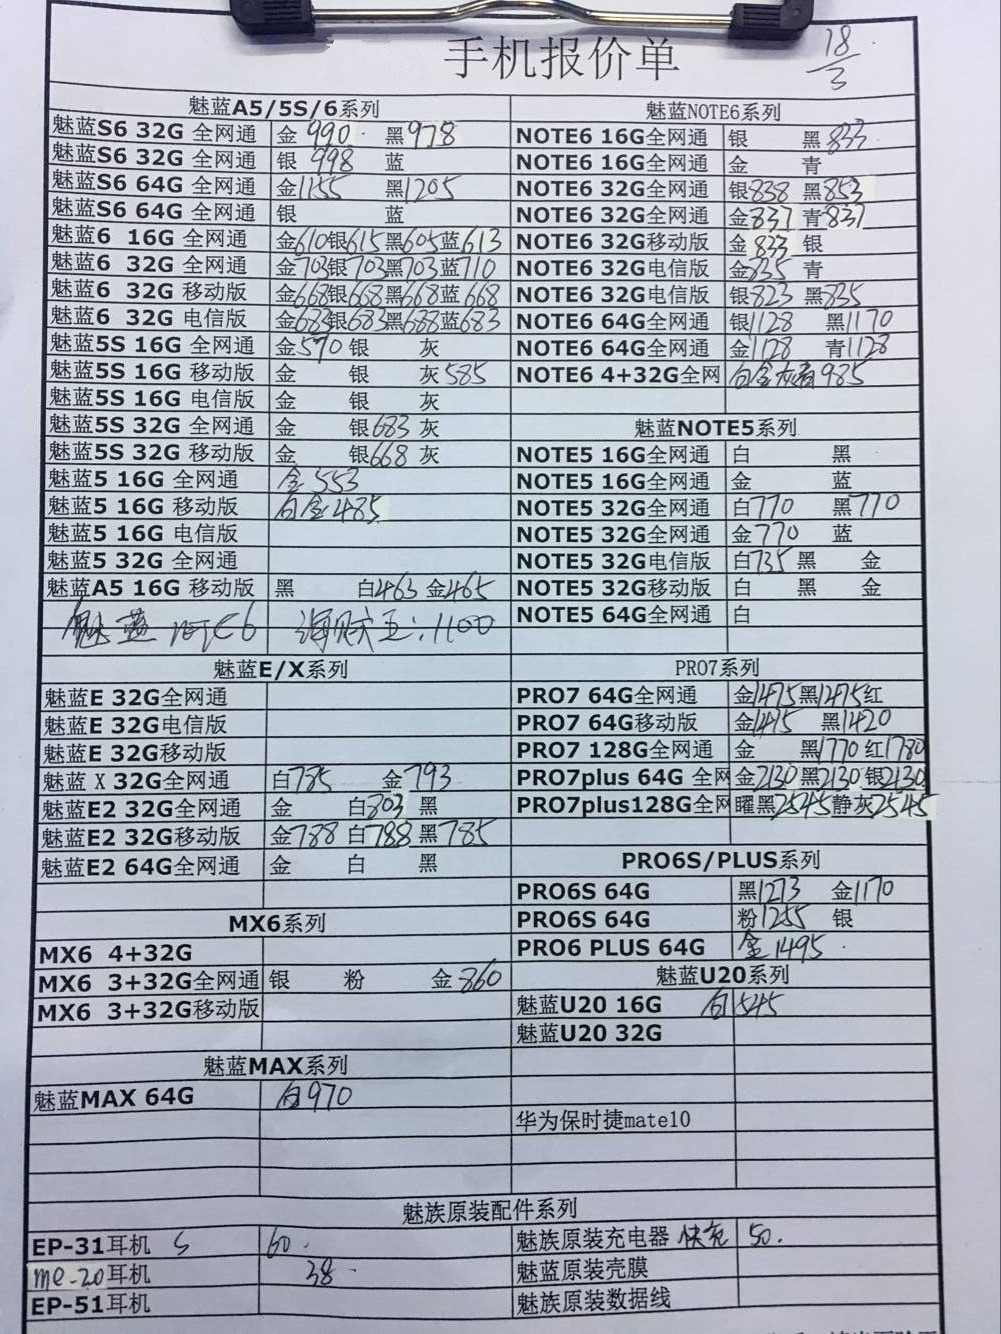 手机报价单
18/3
魅蓝A5/5S/6系列
魅蓝S6 32G 全网通 金 990 黑 978
魅蓝S6 32G 全网通 银 998 蓝
魅蓝S6 64G 全网通 金1155 黑1205
魅蓝S6 64G 全网通 银 蓝
魅蓝6 16G 全网通 金610银615黑605蓝613
魅蓝6 32G 全网通 金703银703黑703蓝710
魅蓝6 32G 移动版 金668银668黑668蓝668
魅蓝6 32G 电信版 金683银683黑688蓝683
魅蓝5S 16G 全网通 金570 银 灰
魅蓝5S 16G 移动版 金 银 灰585
魅蓝5S 16G 电信版 金 银 灰
魅蓝5S 32G 全网通 金 银683 灰
魅蓝5S 32G 移动版 金 银668 灰
魅蓝5 16G 全网通 金 553
魅蓝5 16G 移动版 白金485
魅蓝5 16G 电信版
魅蓝5 32G 全网通
魅蓝A5 16G 移动版 黑 白463 金465
魅蓝 1100
魅蓝E/X系列
魅蓝E 32G全网通
魅蓝E 32G电信版
魅蓝E 32G移动版
魅蓝 X 32G全网通 白785 金793
魅蓝E2 32G全网通 金 白803 黑
魅蓝E2 32G移动版 金788 白788 黑785
魅蓝E2 64G全网通 金 白 黑
MX6系列
MX6 4+32G
MX6 3+32G全网通 银 粉 金860
MX6 3+32G移动版
魅蓝MAX系列
魅蓝MAX 64G 白970
魅蓝NOTE6系列
NOTE6 16G全网通 银 黑833
NOTE6 16G全网通 金 青
NOTE6 32G全网通 银838 黑853
NOTE6 32G全网通 金837 青837
NOTE6 32G移动版 金833 银
NOTE6 32G电信版 金835 青
NOTE6 32G电信版 银823 黑835
NOTE6 64G全网通 银1128 黑1170
NOTE6 64G全网通 金1128 青1128
NOTE6 4+32G全网 985
魅蓝NOTE5系列
NOTE5 16G全网通 白 黑
NOTE5 16G全网通 金 蓝
NOTE5 32G全网通 白770 黑770
NOTE5 32G全网通 金770 蓝
NOTE5 32G电信版 白735 黑 金
NOTE5 32G移动版 白 黑 金
NOTE5 64G全网通 白
PRO7系列
PRO7 64G全网通 金1475黑1475红
PRO7 64G移动版 金1415 黑1420
PRO7 128G全网通 金 黑1770 红1780
PRO7plus 64G 全网 金2130 黑2130 银2130
PRO7plus128G全网 曜黑2545静灰2545
PRO6S/PLUS系列
PRO6S 64G 黑1273 金1170
PRO6S 64G 粉1255 银
PRO6 PLUS 64G 金1495
魅蓝U20系列
魅蓝U20 16G 白545
魅蓝U20 32G
华为保时捷mate10
魅族原装配件系列
EP-31耳机 S 60.
me-20耳机 38
EP-51耳机
魅族原装充电器 快充 50.
魅蓝原装壳膜
魅族原装数据线